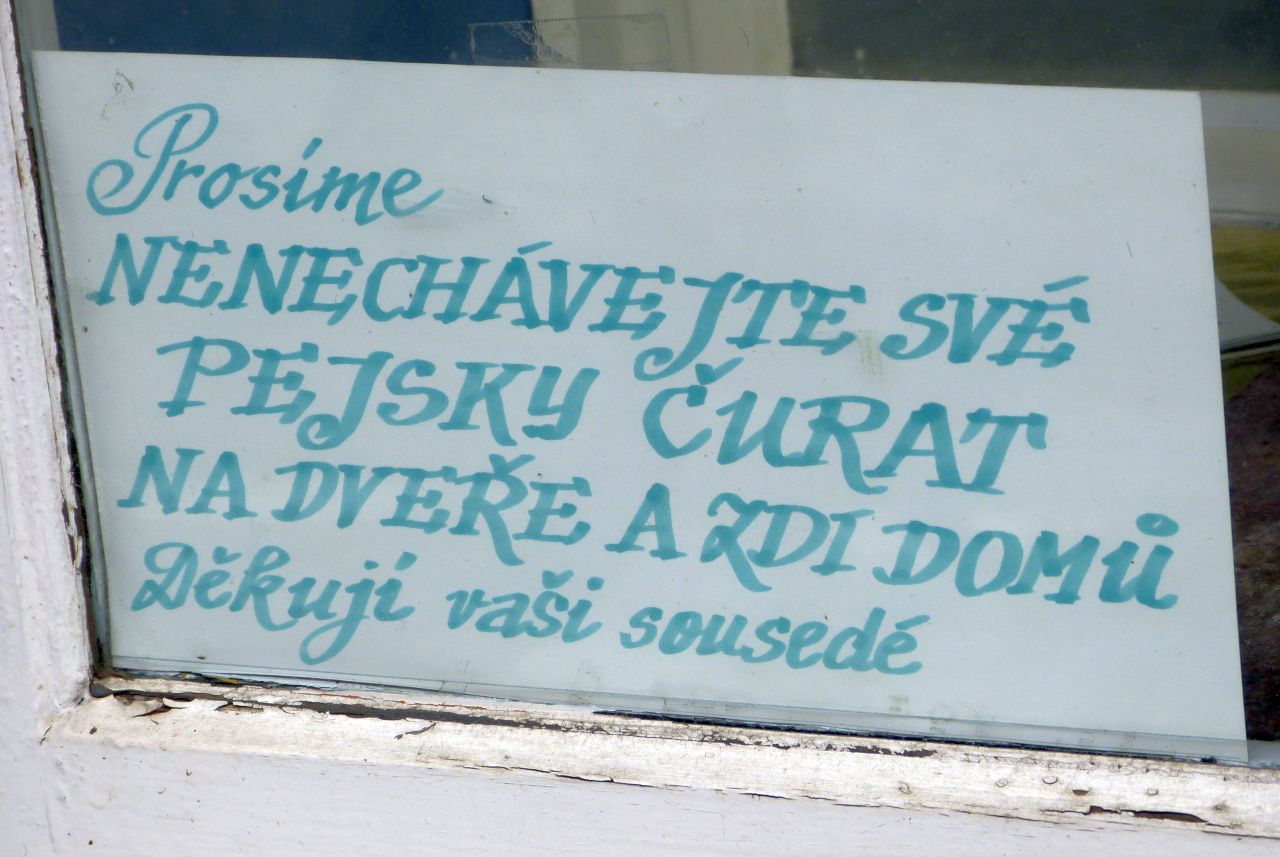 Prosíme
NENECHÁVEJTE SVÉ
PEJSKY ČURAT
NA DVEŘE A ZDI DOMŮ
Děkují vaši sousedé